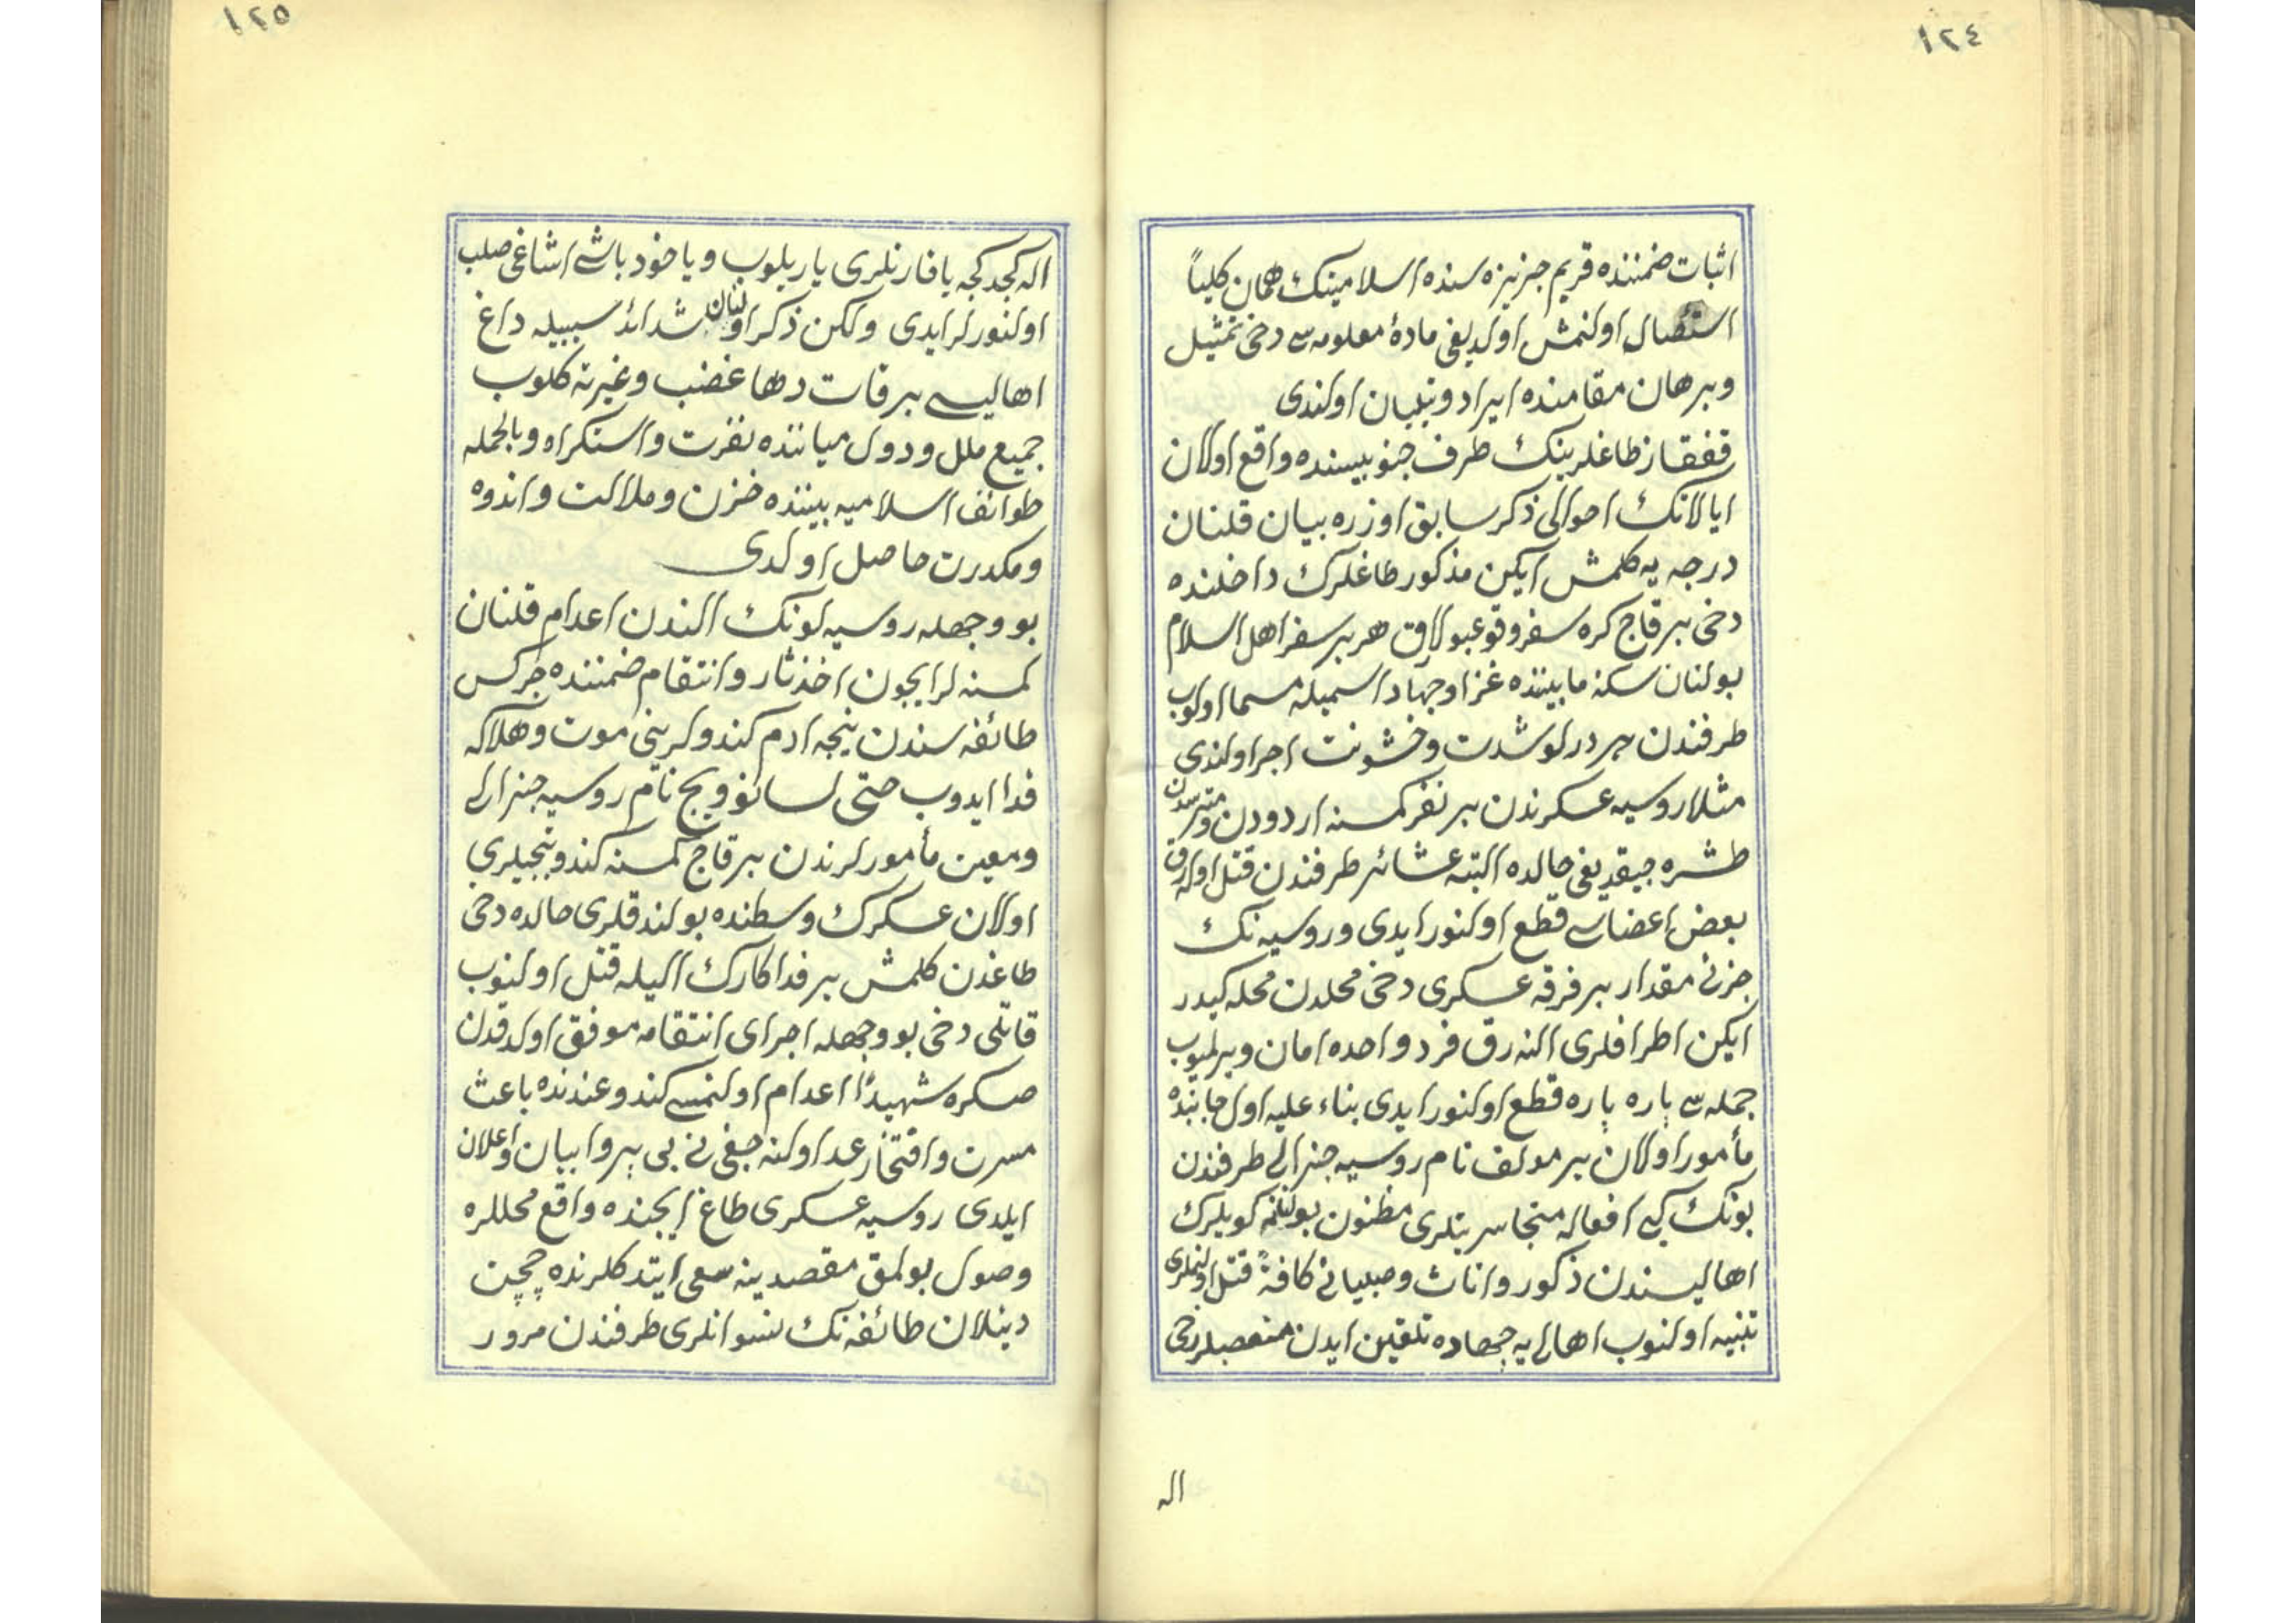 ١٢٤
اثبات ضمننده قريم جزيزه سنده اسلامينك همان كلياً
استئصال اولنمش اولديغى مادۀ معلومه سى دخى تمثيل
وبرهان مقامنده ايراد وتبيان اولندى
قفقاز طاغلرينك طرف جنوبيسنده واقع اولان
ايالاتك احوالى ذكر سابق اوزره بيان قلنان
درجه يه كلمش ايكن مذكور طاغلرك داخلنده
دخى بر قاچ كره سفر وقوعبولارق هر بر سفر اهل اسلام
بولنان سكنه مابيننده غزا وجهاد اسميله مسما اولوب
طرفندن هر درلو شدت وخشونت اجرا اولندى
مثلا روسيه عسكرندن بر نفر كمسنه اردودن ومترسدن
طشره چيقديغى حالده البته عشائر طرفندن قتل اولنه رق
بعض اعضاسى قطع اولنور ايدى وروسيه نك
جزئى مقدار بر فرقه عسكرى دخى محلدن محله كيدر
ايكن اطرافلرى النه رق فرد واحده امان ويرلميوب
جمله سى پاره پاره قطع اولنور ايدى بناء عليه اول جانبده
مأمور اولان بر مولف نام روسيه جنرالى طرفندن
بونك كبى افعاله متجاسرتلرى مظنون بولنان كويلرك
اهاليسندن ذكور واناث وصبيانى كافةً قتل اولنملرى
تنبيه اولنوب اهالى يه جهاده تلقين ايدن متعصبلر دخى
اله
١٢٥
اله كجدكجه يا قارنلرى ياريلوب ويا خود باشى اشاغى صلب
اولنورلر ايدى ولكن ذكر اولنان شدائد سببيله داغ
اهاليسى بر قات دها غضب وغيرته كلوب
جميع ملل ودول ميانnده نفرت واستكراه وبالجمله
طوائف اسلاميه بيننده حزن وملالت واندوه
ومكدرت حاصل اولدى
بو وجهله روسيه لونك الندن اعدام قلنان
كمسنه لر ايچون اخذ ثار وانتقام ضمننده چركس
طائفه سندن نيجه ادم كندولرينى موت وهلاكه
فدا ايدوب حتى لسانوويج نام روسيه جنرالى
ومعين مأمورلرندن بر قاچ كمسنه كندو بنجيلرى
اولان عسكرك وسطنده بولندقلرى حالده دخى
طاغدن كلمش بر فداكارك اليله قتل اولنوب
قاتلى دخى بو وجهله اجراى انتقامه موفق اولدقدن
صكره شهيداً اعدام اولنمسى كندو عندنده باعث
مسرت وافتخار عد اولنه جغى نى بى پروا بيان واعلان
ايلدى روسيه عسكرى طاغ ايچنده واقع محللره
وصول بولمق مقصدينه سعى ايتدكلرنده چچن
دينلان طائفه نك نسوانلرى طرفندن مرور